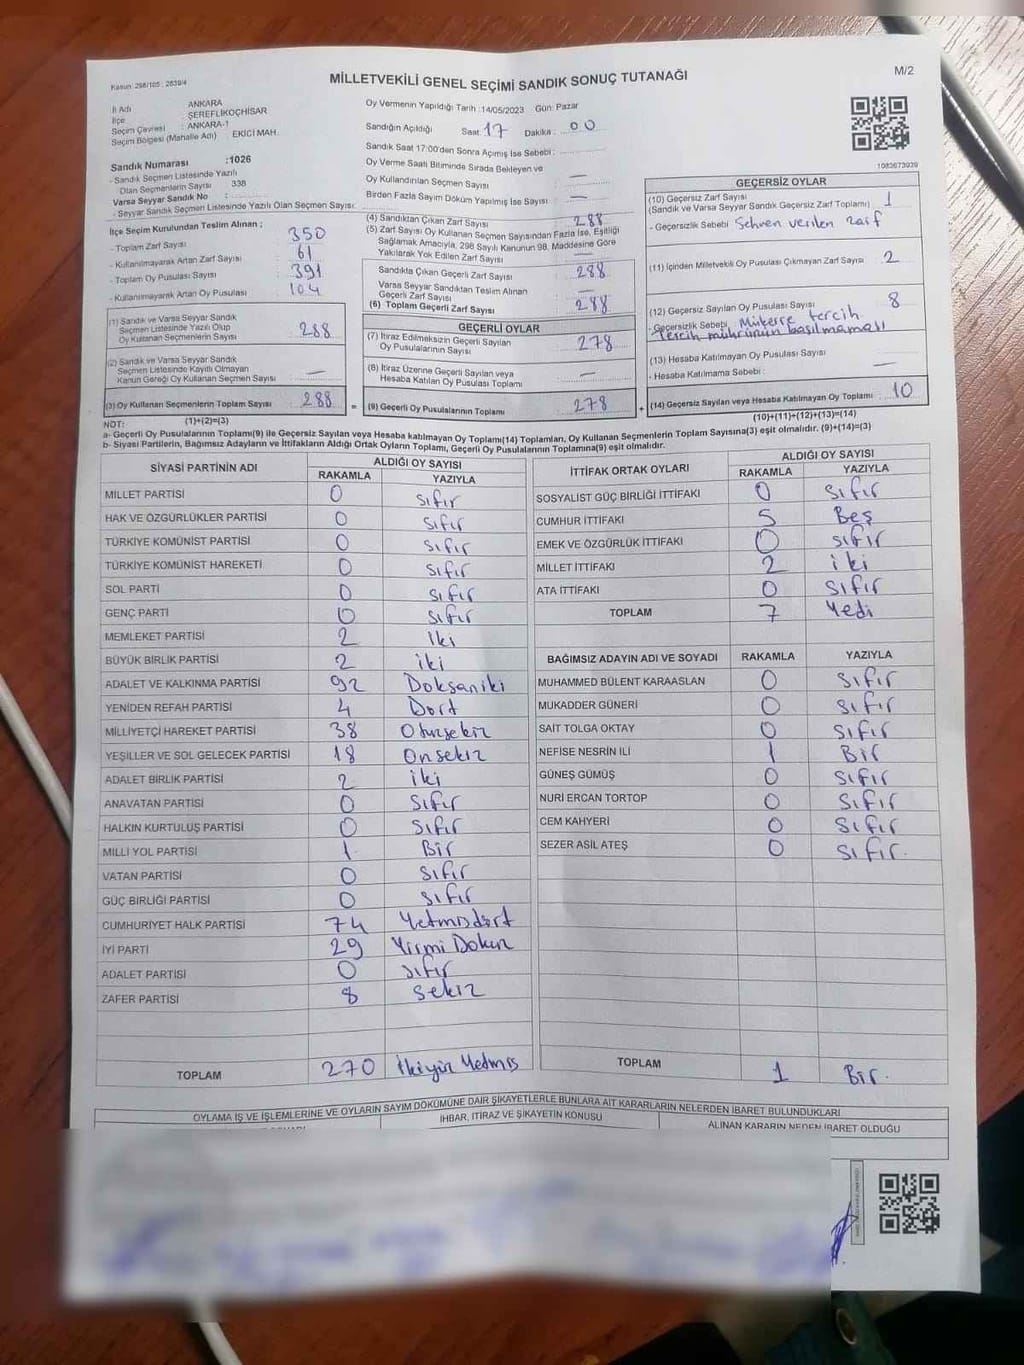 Kanun: 298/105 ; 2839/4
MİLLETVEKİLİ GENEL SEÇİMİ SANDIK SONUÇ TUTANAĞI
M/2
İl Adı ANKARA
İlçe : ŞEREFLİKOÇHİSAR
Seçim Çevresi : ANKARA-1
Seçim Bölgesi (Mahalle Adı) : EKİCİ MAH.
Sandık Numarası :1026
- Sandık Seçmen Listesinde Yazılı
Olan Seçmenlerin Sayısı : 338
Varsa Seyyar Sandık No :
- Seyyar Sandık Seçmen Listesinde Yazılı Olan Seçmen Sayısı:
Oy Vermenin Yapıldığı Tarih :14/05/2023 Gün: Pazar
Sandığın Açıldığı Saat 17 Dakika : 00
Sandık Saat 17:00'den Sonra Açımış İse Sebebi :
Oy Verme Saati Bitiminde Sırada Bekleyen ve
Oy Kullandırılan Seçmen Sayısı : —
Birden Fazla Sayım Döküm Yapılmış İse Sayısı : —
1083673939
İlçe Seçim Kurulundan Teslim Alınan ;
- Toplam Zarf Sayısı : 350
- Kullanılmayarak Artan Zarf Sayısı : 61
- Toplam Oy Pusulası Sayısı : 391
- Kullanılmayarak Artan Oy Pusulası : 104
(1) Sandık ve Varsa Seyyar Sandık
Seçmen Listesinde Yazılı Olup
Oy Kullanan Seçmenlerin Sayısı : 288
(2) Sandık ve Varsa Seyyar Sandık
Seçmen Listesinde Kayıtlı Olmayan
Kanun Gereği Oy Kullanan Seçmen Sayısı : —
(3) Oy Kullanan Seçmenlerin Toplam Sayısı : 288
(1)+(2)=(3)
(4) Sandıktan Çıkan Zarf Sayısı : 288
(5) Zarf Sayısı Oy Kullanan Seçmen Sayısından Fazla İse, Eşitliği
Sağlamak Amacıyla, 298 Sayılı Kanunun 98. Maddesine Göre
Yakılarak Yok Edilen Zarf Sayısı : —
Sandıkta Çıkan Geçerli Zarf Sayısı : 288
Varsa Seyyar Sandıktan Teslim Alınan
Geçerli Zarf Sayısı : —
(6) Toplam Geçerli Zarf Sayısı : 288
GEÇERLİ OYLAR
(7) İtiraz Edilmeksizin Geçerli Sayılan
Oy Pusulalarının Sayısı : 278
(8) İtiraz Üzerine Geçerli Sayılan veya
Hesaba Katılan Oy Pusulası Toplamı : —
= (9) Geçerli Oy Pusulalarının Toplamı : 278
GEÇERSİZ OYLAR
(10) Geçersiz Zarf Sayısı : 1
(Sandık ve Varsa Seyyar Sandık Geçersiz Zarf Toplamı)
- Geçersizlik Sebebi : Sehven verilen zarf
(11) İçinden Milletvekili Oy Pusulası Çıkmayan Zarf Sayısı : 2
(12) Geçersiz Sayılan Oy Pusulası Sayısı : 8
- Geçersizlik Sebebi : Mükerre tercih
Tercih mührünün basılmaması
(13) Hesaba Katılmayan Oy Pusulası Sayısı : —
- Hesaba Katılmama Sebebi :
+ (14) Geçersiz Sayılan veya Hesaba Katılmayan Oy Toplamı : 10
(10)+(11)+(12)+(13)=(14)
NOT:
a- Geçerli Oy Pusulalarının Toplamı(9) ile Geçersiz Sayılan veya Hesaba katılmayan Oy Toplamı(14) Toplamları, Oy Kullanan Seçmenlerin Toplam Sayısına(3) eşit olmalıdır. (9)+(14)=(3)
b- Siyasi Partilerin, Bağımsız Adayların ve İttifakların Aldığı Ortak Oyların Toplamı, Geçerli Oy Pusulalarının Toplamına(9) eşit olmalıdır.
SİYASİ PARTİNİN ADI ALDIĞI OY SAYISI
RAKAMLA YAZIYLA
MİLLET PARTİSİ 0 sıfır
HAK VE ÖZGÜRLÜKLER PARTİSİ 0 sıfır
TÜRKİYE KOMÜNİST PARTİSİ 0 sıfır
TÜRKİYE KOMÜNİST HAREKETİ 0 sıfır
SOL PARTİ 0 sıfır
GENÇ PARTİ 0 sıfır
MEMLEKET PARTİSİ 2 iki
BÜYÜK BİRLİK PARTİSİ 2 iki
ADALET VE KALKINMA PARTİSİ 92 Doksaniki
YENİDEN REFAH PARTİSİ 4 Dört
MİLLİYETÇİ HAREKET PARTİSİ 38 Otuzsekiz
YEŞİLLER VE SOL GELECEK PARTİSİ 18 Onsekiz
ADALET BİRLİK PARTİSİ 2 iki
ANAVATAN PARTİSİ 0 sıfır
HALKIN KURTULUŞ PARTİSİ 0 sıfır
MİLLİ YOL PARTİSİ 1 Bir
VATAN PARTİSİ 0 sıfır
GÜÇ BİRLİĞİ PARTİSİ 0 sıfır
CUMHURİYET HALK PARTİSİ 74 Yetmişdört
İYİ PARTİ 29 Yirmi Dokuz
ADALET PARTİSİ 0 sıfır
ZAFER PARTİSİ 8 sekiz
TOPLAM 270 İkiyüz Yetmiş
İTTİFAK ORTAK OYLARI ALDIĞI OY SAYISI
RAKAMLA YAZIYLA
SOSYALİST GÜÇ BİRLİĞİ İTTİFAKI 0 sıfır
CUMHUR İTTİFAKI 5 Beş
EMEK VE ÖZGÜRLÜK İTTİFAKI 0 sıfır
MİLLET İTTİFAKI 2 iki
ATA İTTİFAKI 0 sıfır
TOPLAM 7 Yedi
BAĞIMSIZ ADAYIN ADI VE SOYADI RAKAMLA YAZIYLA
MUHAMMED BÜLENT KARAASLAN 0 sıfır
MUKADDER GÜNERİ 0 sıfır
SAİT TOLGA OKTAY 0 sıfır
NEFİSE NESRİN İLİ 1 Bir
GÜNEŞ GÜMÜŞ 0 sıfır
NURİ ERCAN TORTOP 0 sıfır
CEM KAHYERİ 0 sıfır
SEZER ASİL ATEŞ 0 sıfır.
TOPLAM 1 Bir.
OYLAMA İŞ VE İŞLEMLERİNE VE OYLARIN SAYIM DÖKÜMÜNE DAİR ŞİKAYETLERLE BUNLARA AİT KARARLARIN NELERDEN İBARET BULUNDUKLARI
İHBAR, İTİRAZ VE ŞİKAYETİN KONUSU
ALINAN KARARIN NEDEN İBARET OLDUĞU